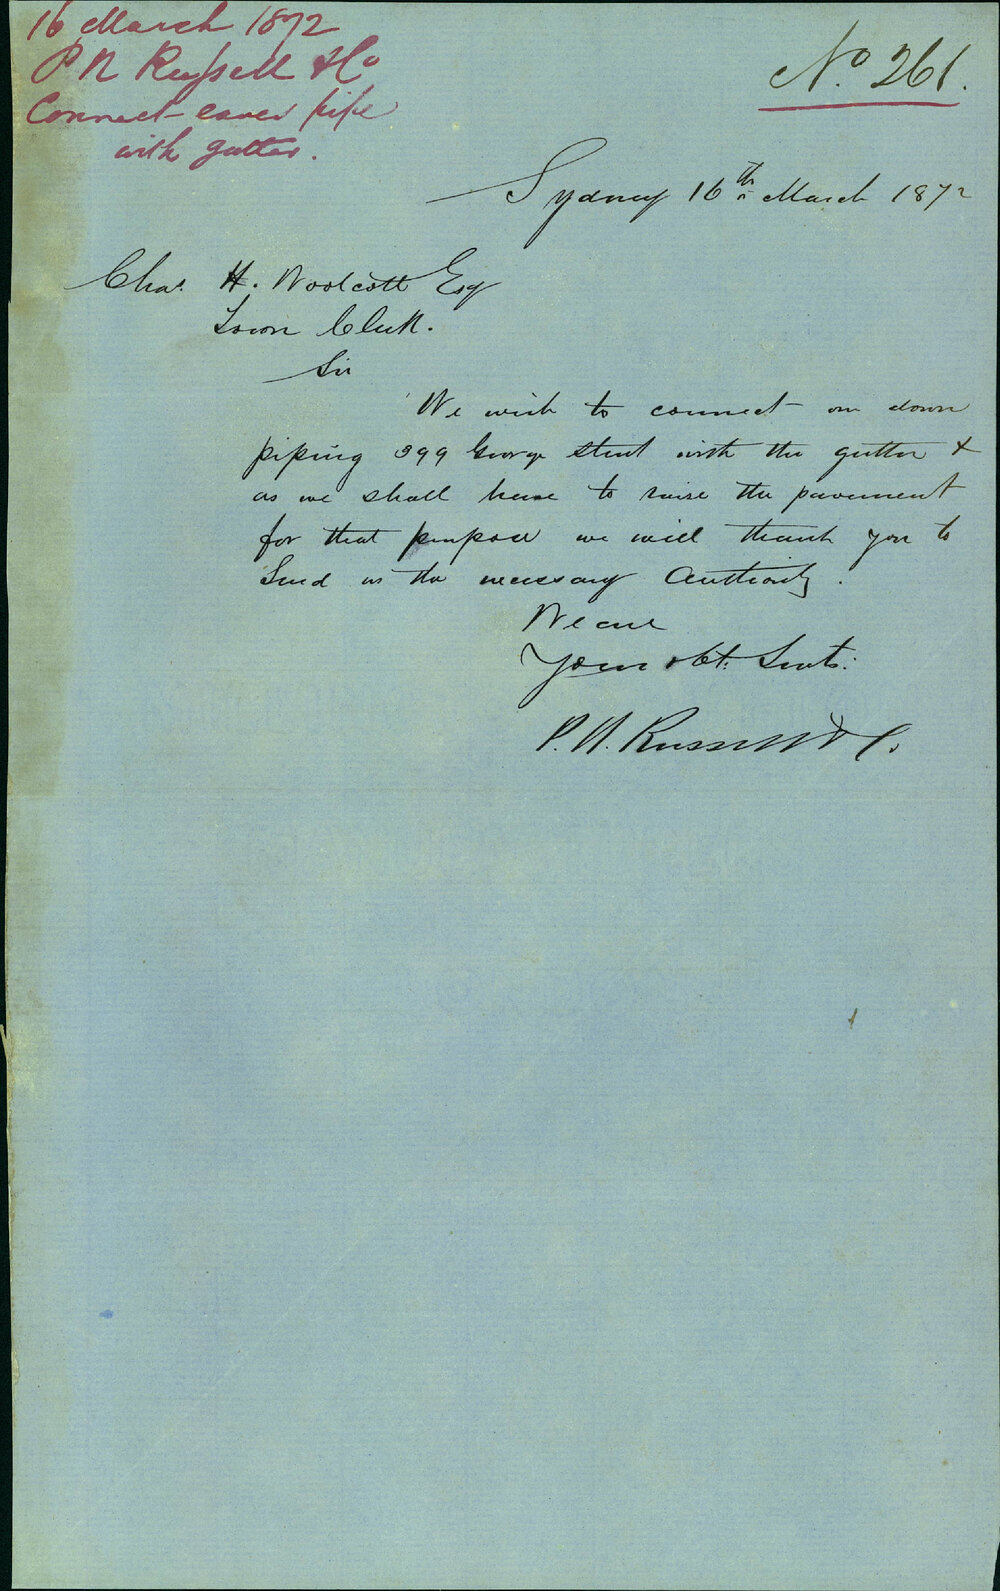 16 March 1872
P N Russell & Co
Connect eaves pipe
with gutter.
No 261.
Sydney 16th March 1872
Chas. H. Woolcott Esq
Town Clerk.
Sir
We wish to connect our down
piping 399 George Street with the gutter &
as we shall have to raise the pavement
for that purpose we will thank you to
Send us the necessary Authority.
We are
Your obt: Servts:
P. N. Russell & Co.